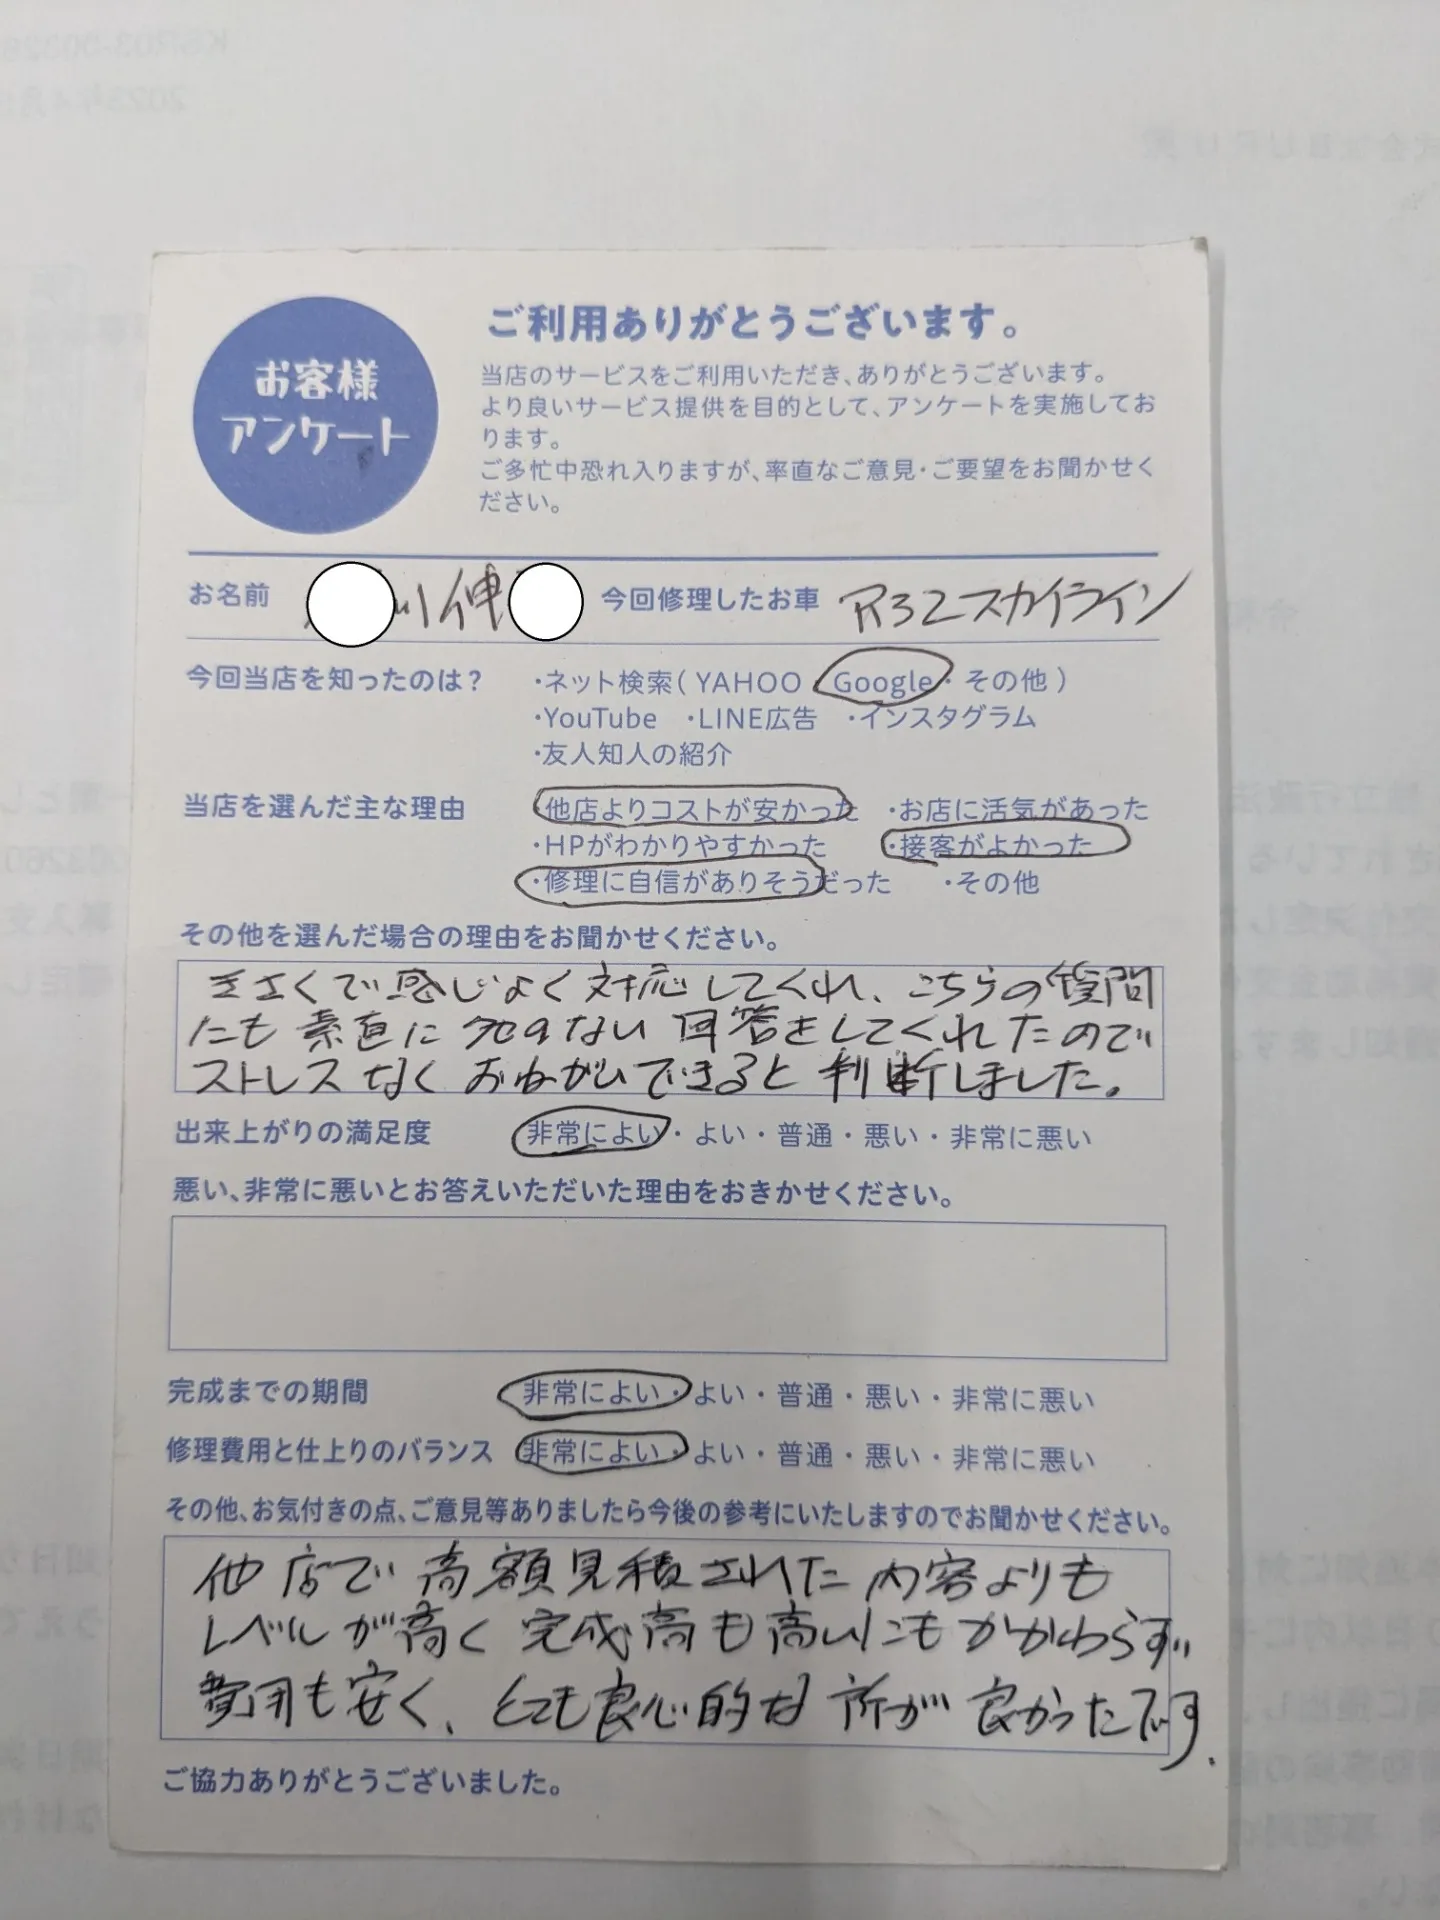 お客様
アンケート
ご利用ありがとうございます。
当店のサービスをご利用いただき、ありがとうございます。
より良いサービス提供を目的として、アンケートを実施してお
ります。
ご多忙中恐れ入りますが、率直なご意見・ご要望をお聞かせく
ださい。
お名前 川伸 今回修理したお車 R32スカイライン
今回当店を知ったのは? ・ネット検索( YAHOO ・ Google ・ その他 )
・YouTube ・LINE広告 ・インスタグラム
・友人知人の紹介
当店を選んだ主な理由 ・他店よりコストが安かった ・お店に活気があった
・HPがわかりやすかった ・接客がよかった
・修理に自信がありそうだった ・その他
その他を選んだ場合の理由をお聞かせください。
きさくで感じよく対応してくれ、こちらの質問
にも素直に 回答をしてくれたので
ストレスなくおねがいできると判断しました。
出来上がりの満足度 非常によい・よい・普通・悪い・非常に悪い
悪い、非常に悪いとお答えいただいた理由をおきかせください。
完成までの期間 非常によい・よい・普通・悪い・非常に悪い
修理費用と仕上りのバランス 非常によい・よい・普通・悪い・非常に悪い
その他、お気付きの点、ご意見等ありましたら今後の参考にいたしますのでお聞かせください。
他店で高額見積された内容よりも
レベルが高く完成高も高いにもかかわらず
費用も安く、とても良心的な所が良かったです.
ご協力ありがとうございました。